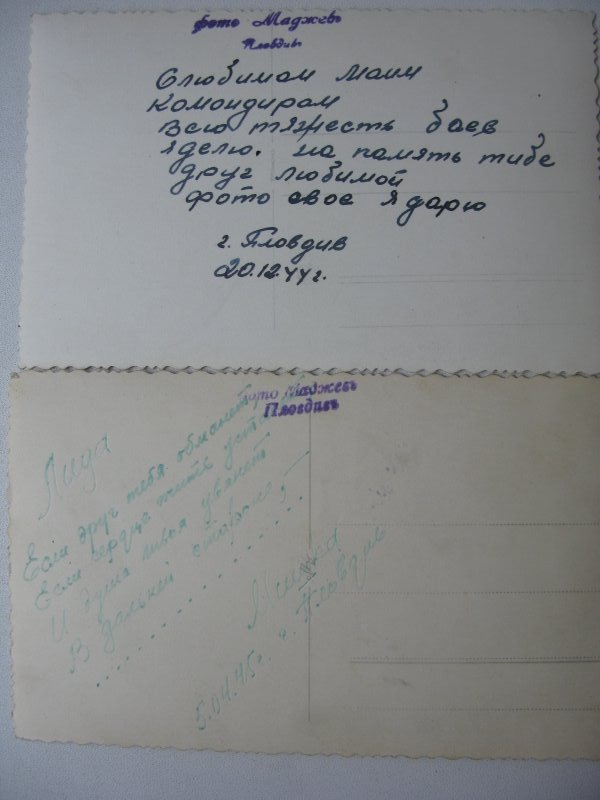 фото Маджевъ
Пловдивъ
Слюбимам Маим
командирам
всю тяжесть баев
я делю. на память тибе
друг любимой
фото свое я дарю
г. Пловдив
20.12.44 г.
фото Маджевъ
Пловдивъ
Лида
Если друг тебя обманет
Если сердце жить устанет
И душа твоя увянет
В дальней стороне
5.04.45 г. г. Пловдив